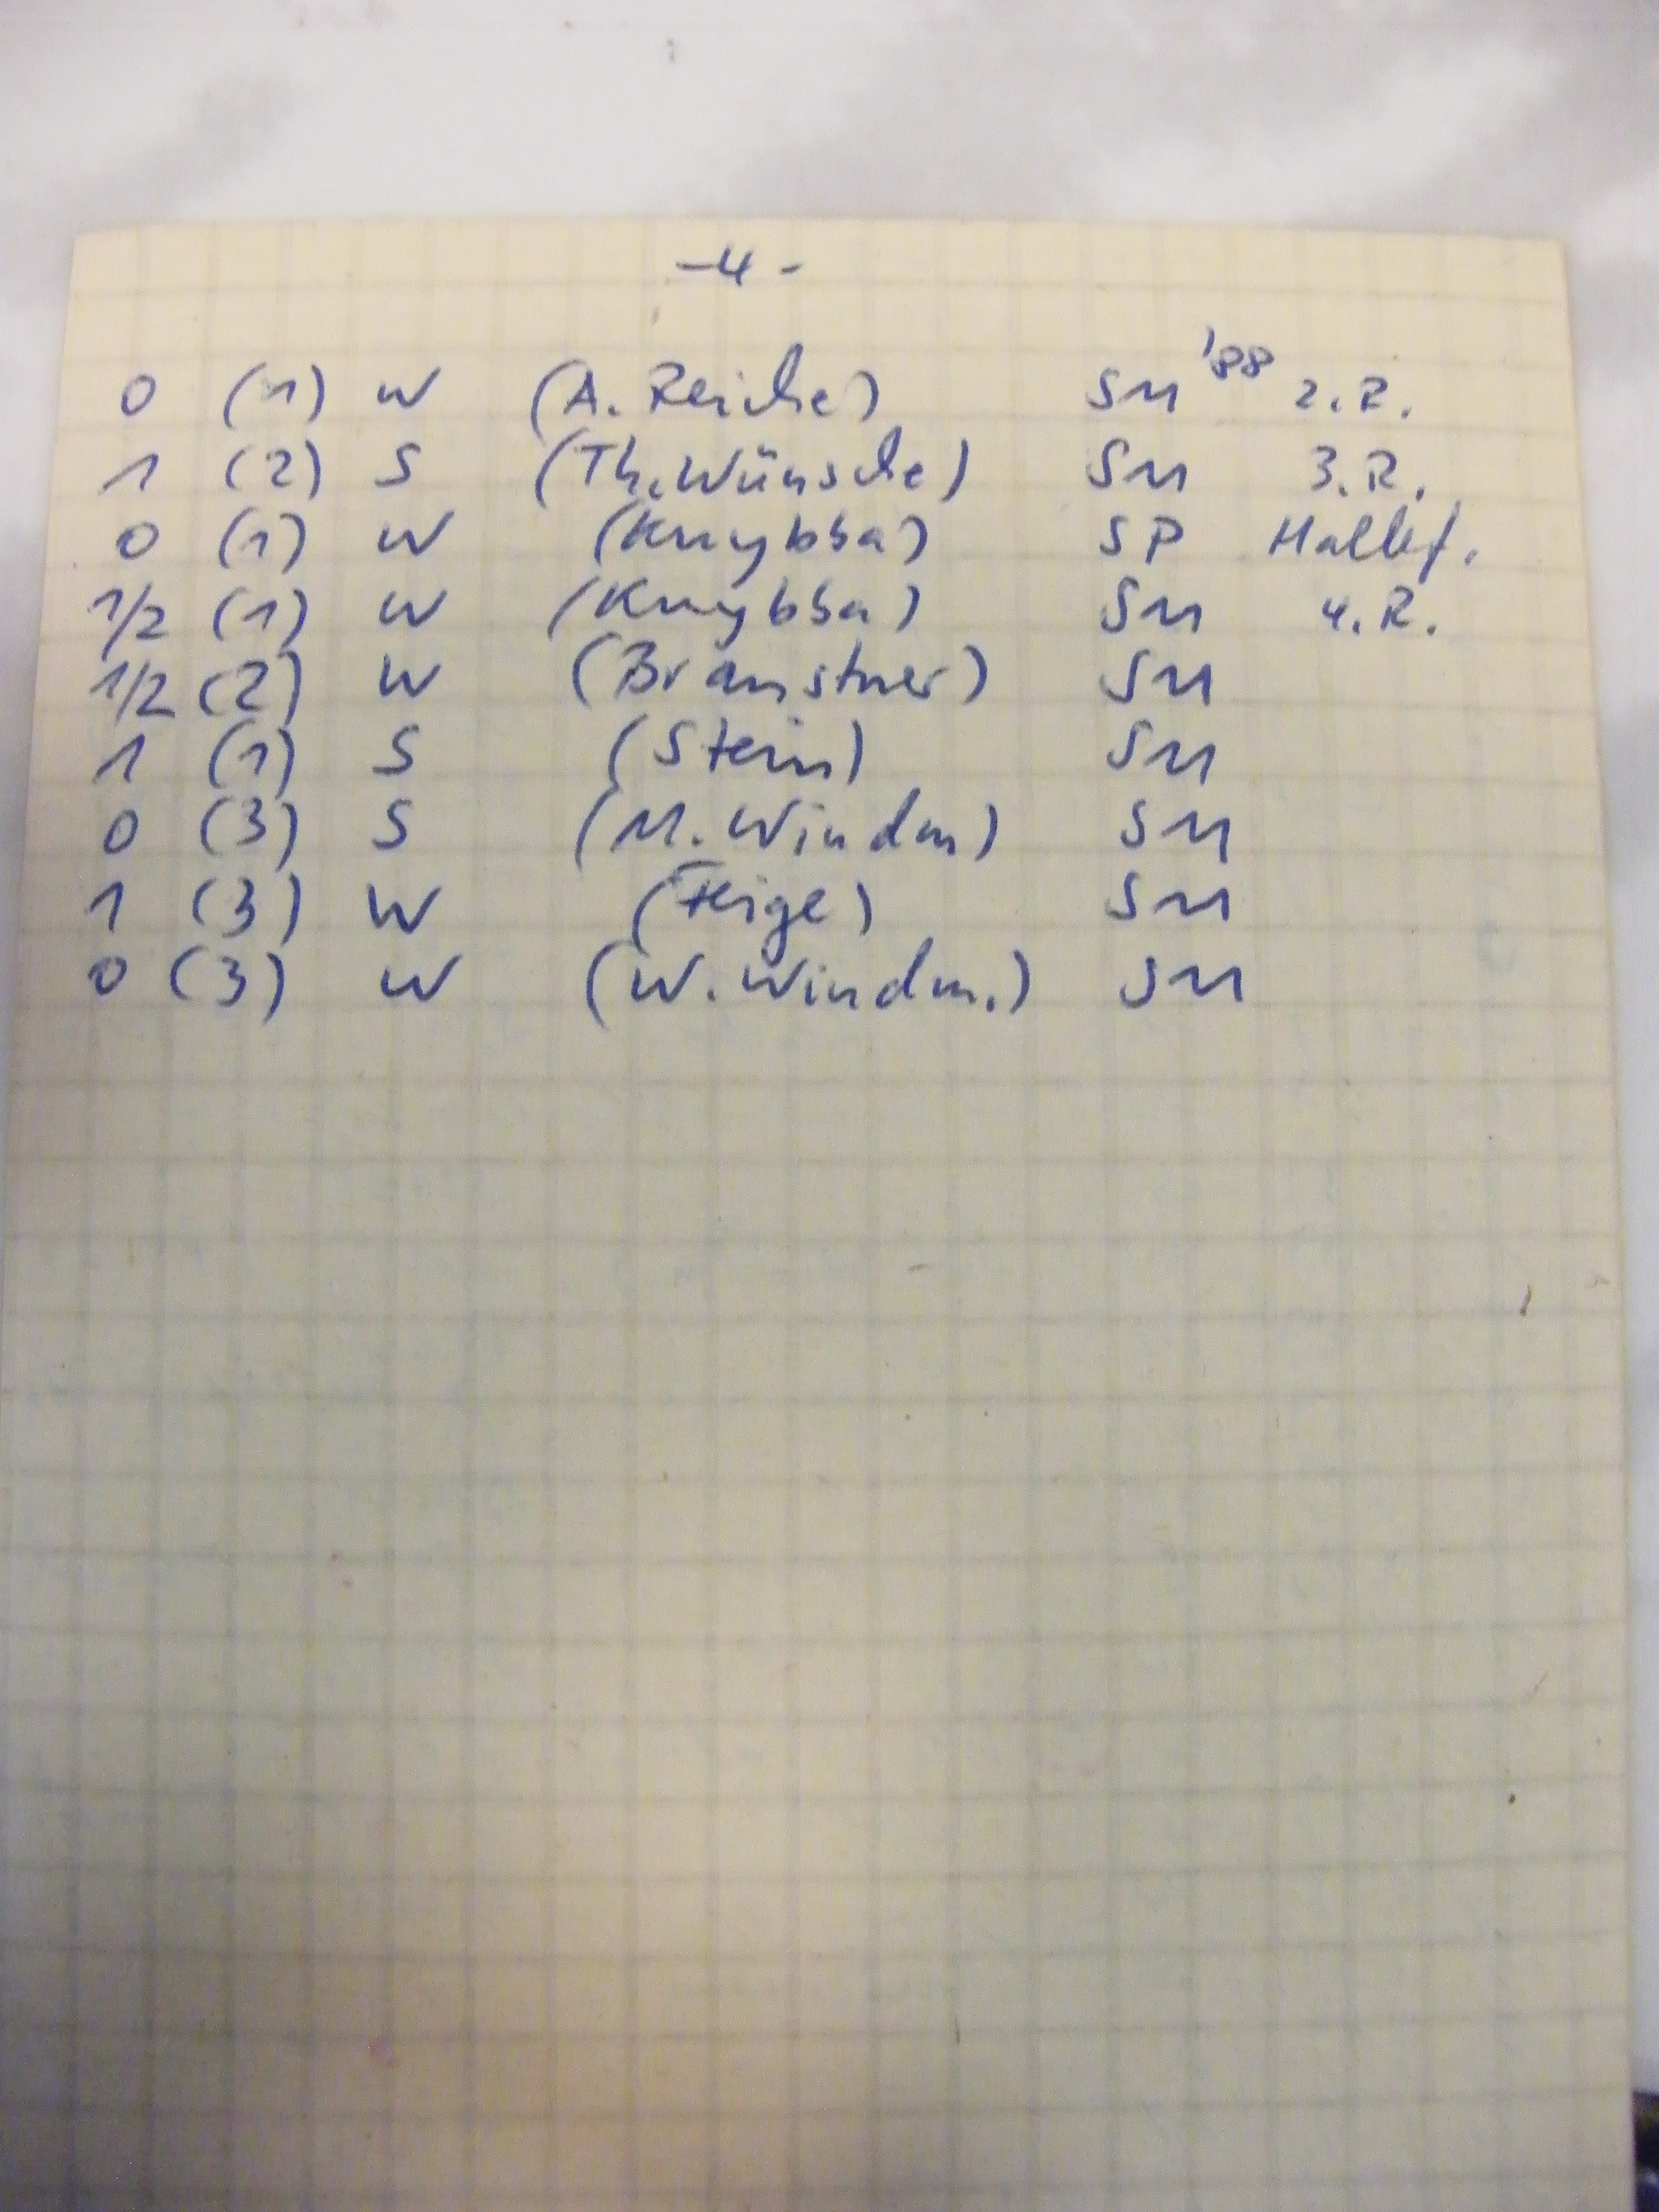 -4-
0 (1) W (A. Reiche) SM '88 2.R.
1 (2) S (Th. Wünsche) SM 3.R.
0 (1) W (Knybba) SP Halbf.
1/2 (1) W (Knybba) SM 4.R.
1/2 (2) W (Bramstner) SM
1 (1) S (Stein) SM
0 (3) S (M. Windm) SM
1 (3) W (Feige) SM
0 (3) W (W. Windm.) SM